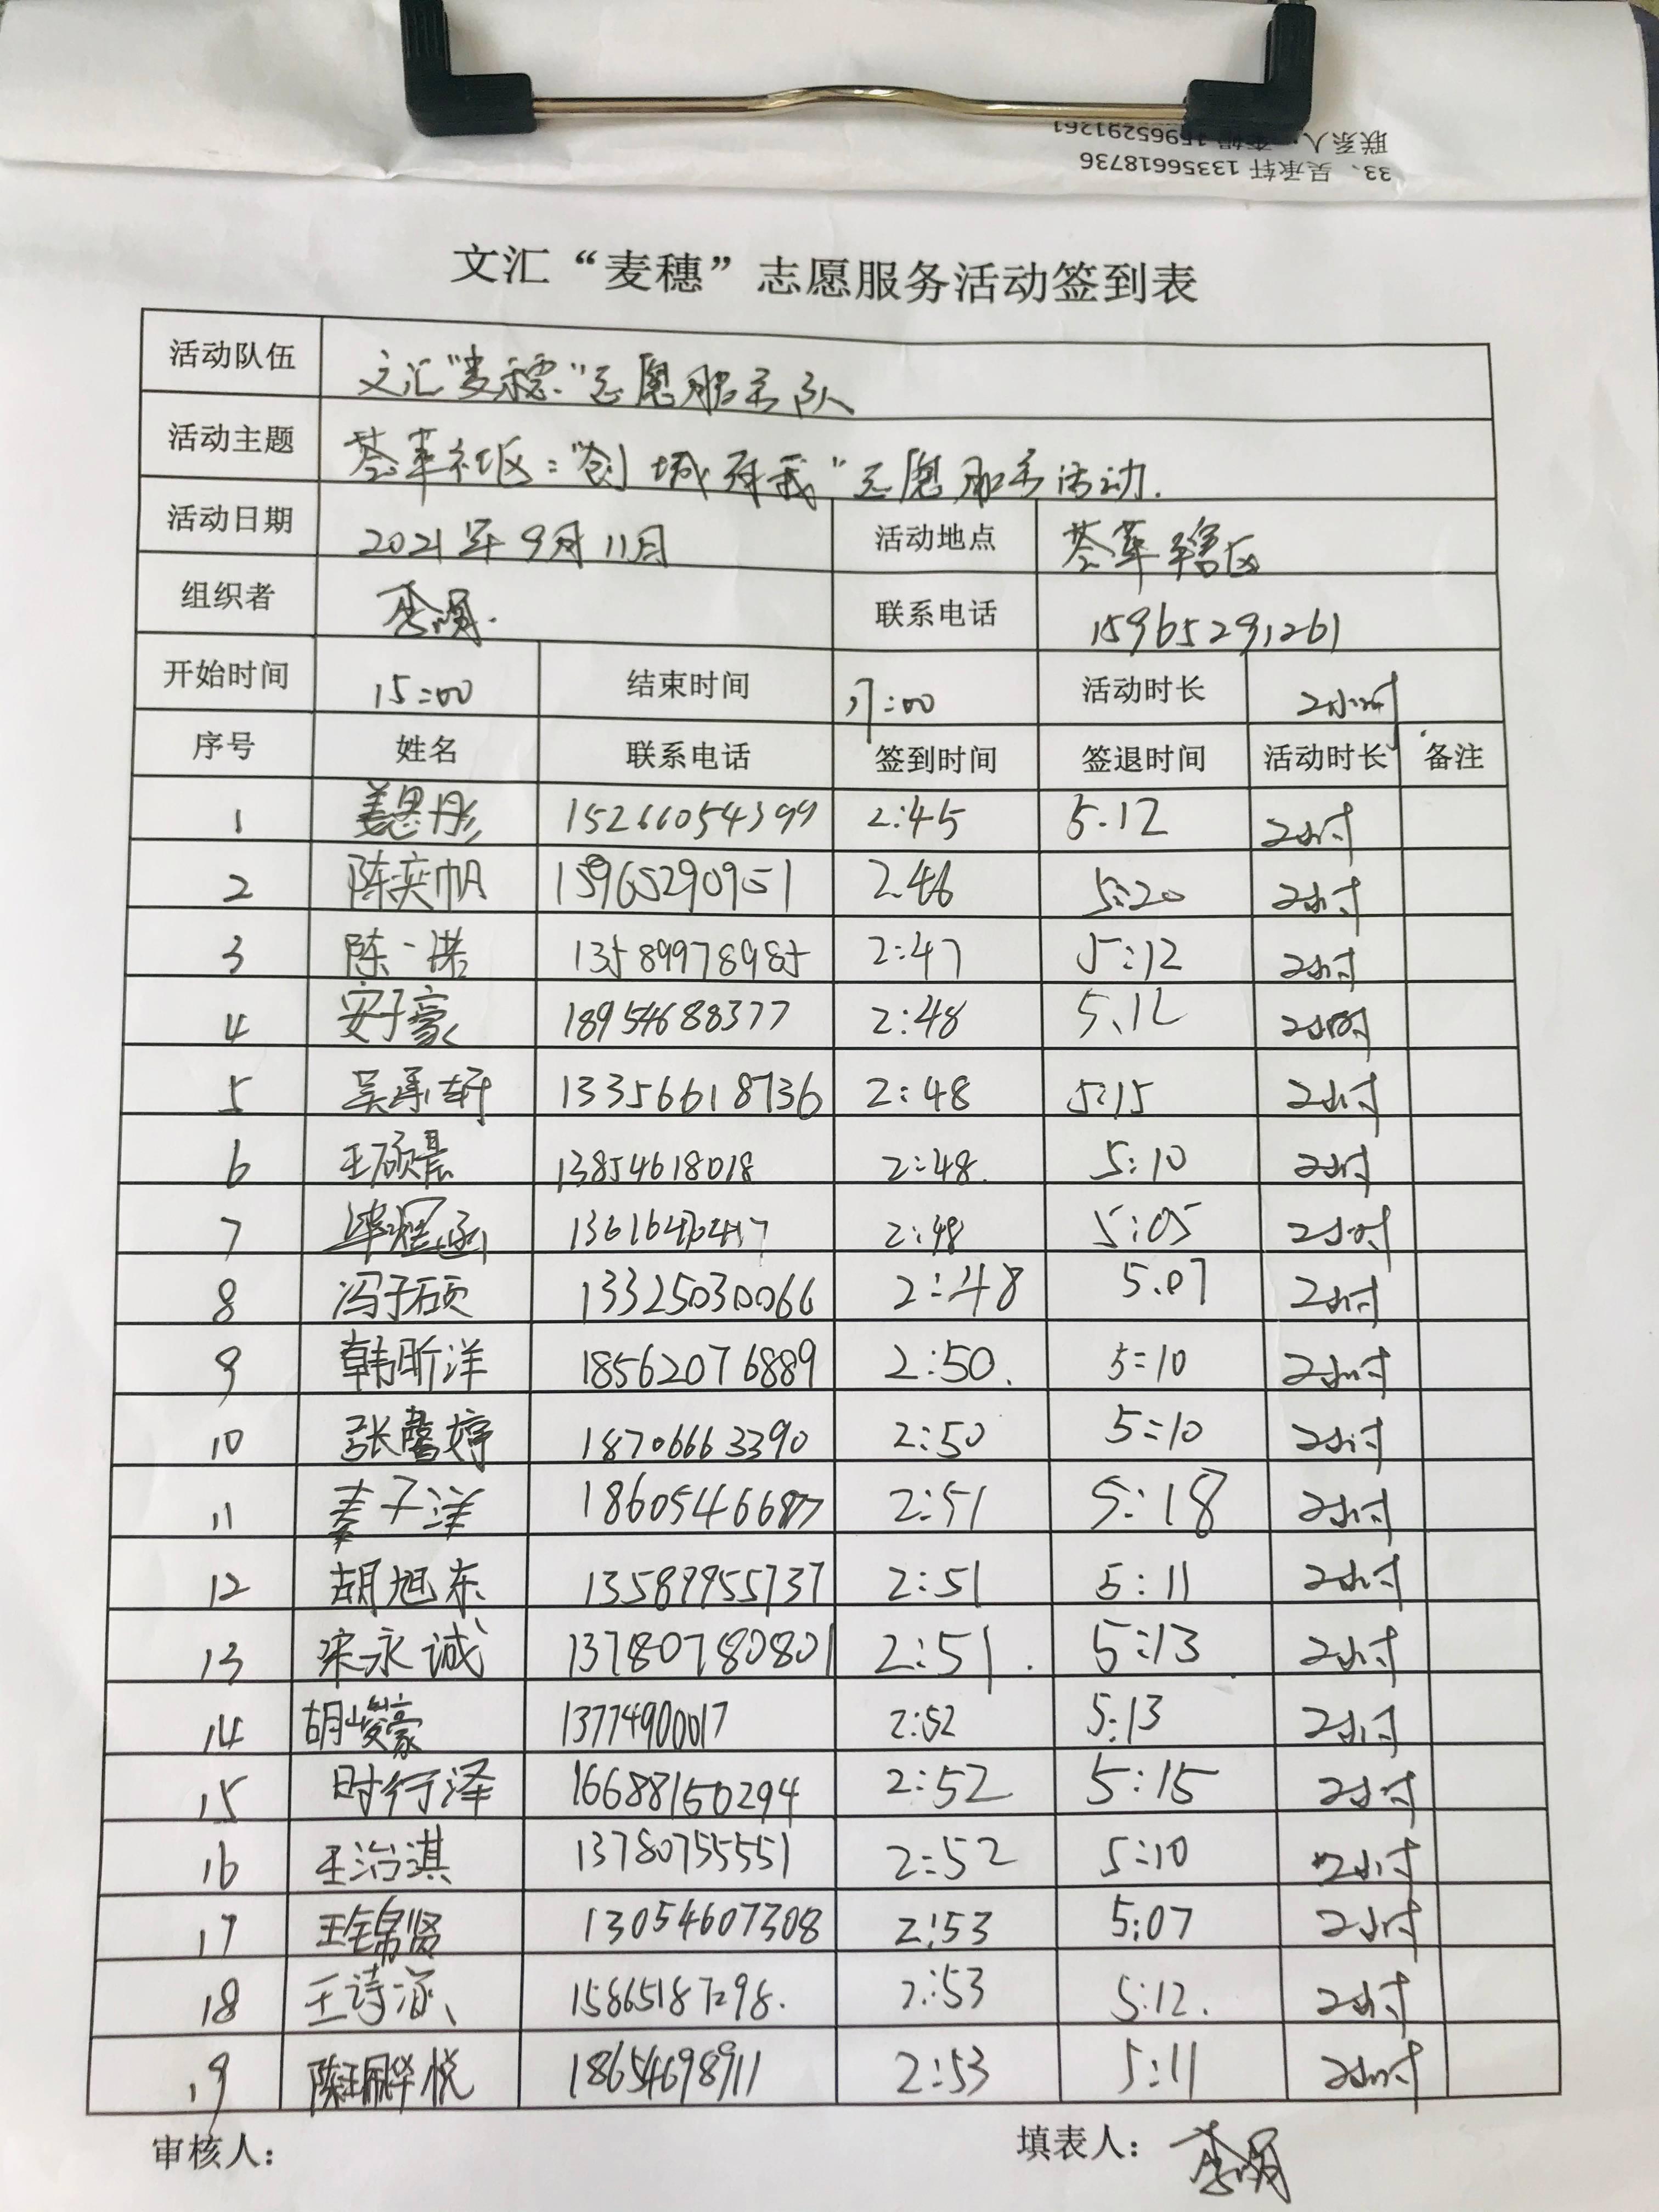 33、吴承轩 13356618736
联系人: 15965291261
文汇“麦穗”志愿服务活动签到表
活动队伍 文汇“麦穗”志愿服务队
活动主题 荟萃社区:“创城有我”志愿服务活动.
活动日期 2021年9月11日 活动地点 荟萃辖区
组织者 李娟. 联系电话 15965291261
开始时间 15:00 结束时间 17:00 活动时长 2小时
序号 姓名 联系电话 签到时间 签退时间 活动时长 备注
1 姜思彤 15266054399 2:45 5.12 2小时
2 陈奕帆 15965290951 2.46 5:20 2小时
3 陈一诺 13589978985 2:47 5:12 2小时
4 安子豪 18954688377 2:48 5.12 2小时
5 吴承轩 13356618736 2:48 5:15 2小时
6 王硕晨 13854618018 2:48. 5:10 2小时
7 2:48 5:05 2小时
8 冯子硕 13325030066 2:48 5.07 2小时
9 韩昕洋 18562076889 2:50. 5:10 2小时
10 张馨婷 18706663390 2:50 5:10 2小时
11 秦子洋 2:51 5:18 2小时
12 胡旭东 13589955737 2:51 5:11 2小时
13 宋永诚 13780780801 2:51. 5:13 2小时
14 胡峻豪 13774900017 2:52 5:13 2小时
15 时行泽 16688150294 2:52 5:15 2小时
16 王治淇 13780755551 2:52 5:10 2小时
17 王锦贤 13054607308 2:53 5:07 2小时
18 王诗涵 15865187298. 2:53 5:12. 2小时
19 18654698911 2:53 5:11 2小时
审核人: 填表人: 李娟